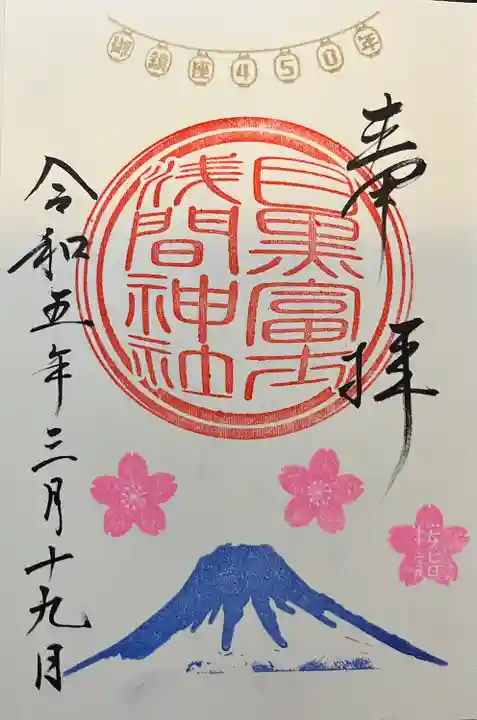 御鎮座450年
奉拝
目黒富士
浅間神社
桜詣
令和五年三月十九日